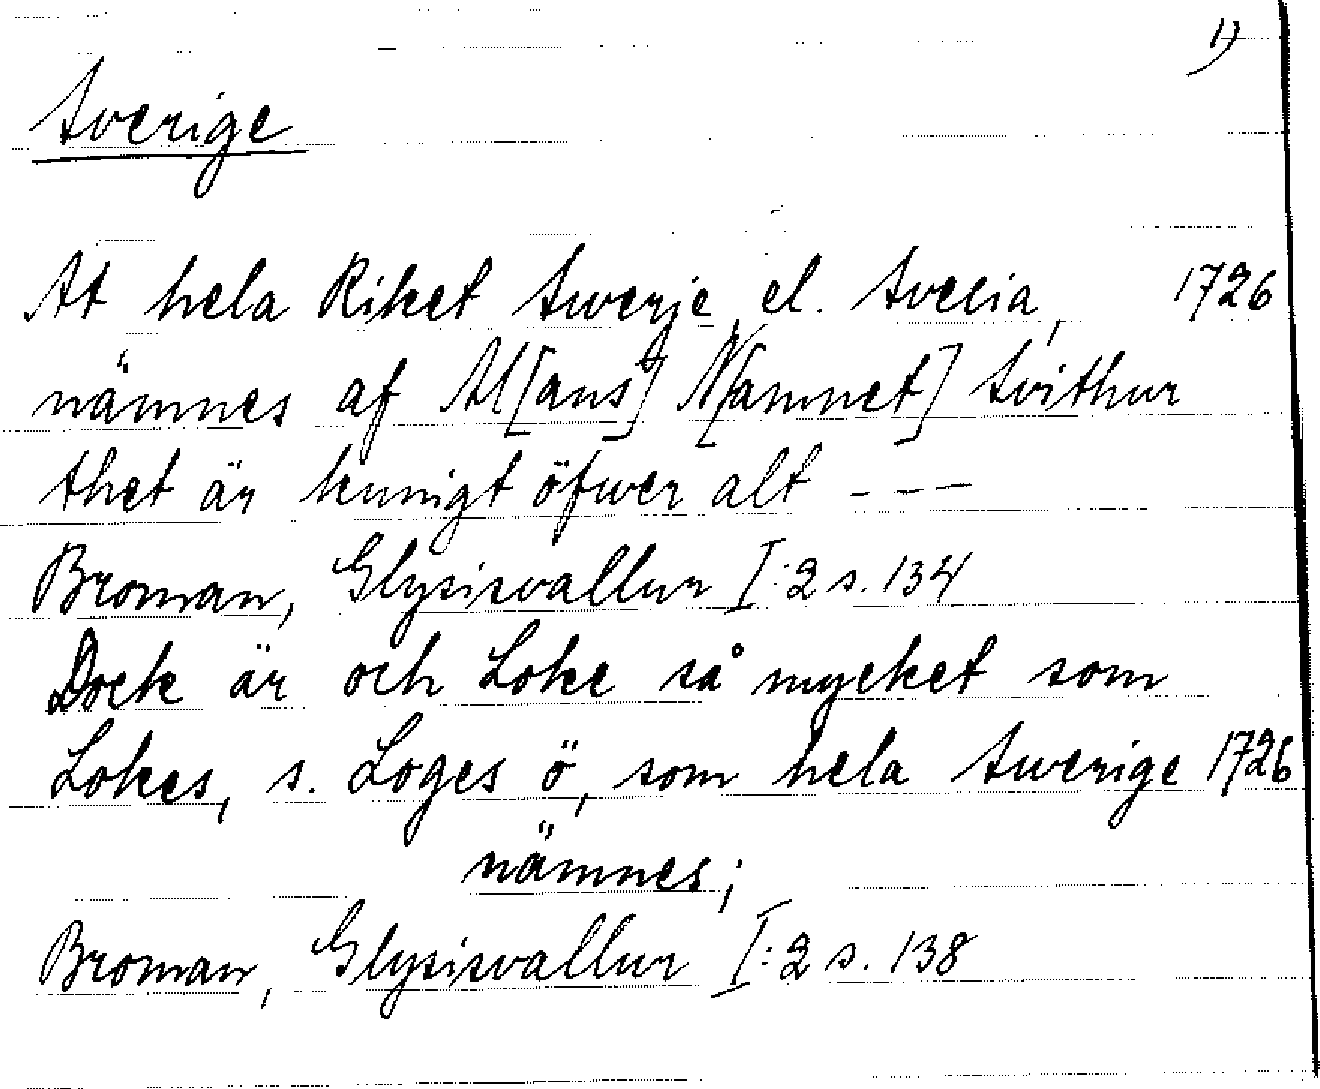 1)
Sverige
At hela Riket Swerje el. Svecia, 1726
nämnes af Al[ans] N[amnet] Svithur
thet är kunigt öfwer alt - - -
Broman, Glysisvallur I:2 s. 134
Dock är och Loke så mycket som
Lokes, s. Loges ö, som hela Swerige 1726
nämnes;
Broman, Glysisvallur I:2 s. 138